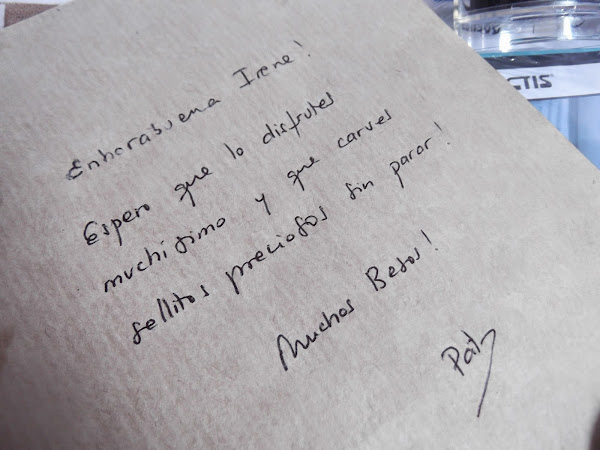 Enhorabuena Irene!
Espero que lo disfrutes
muchísimo y que carves
sellitos preciosos sin parar!
Muchos Besos!
Paty
CTIS